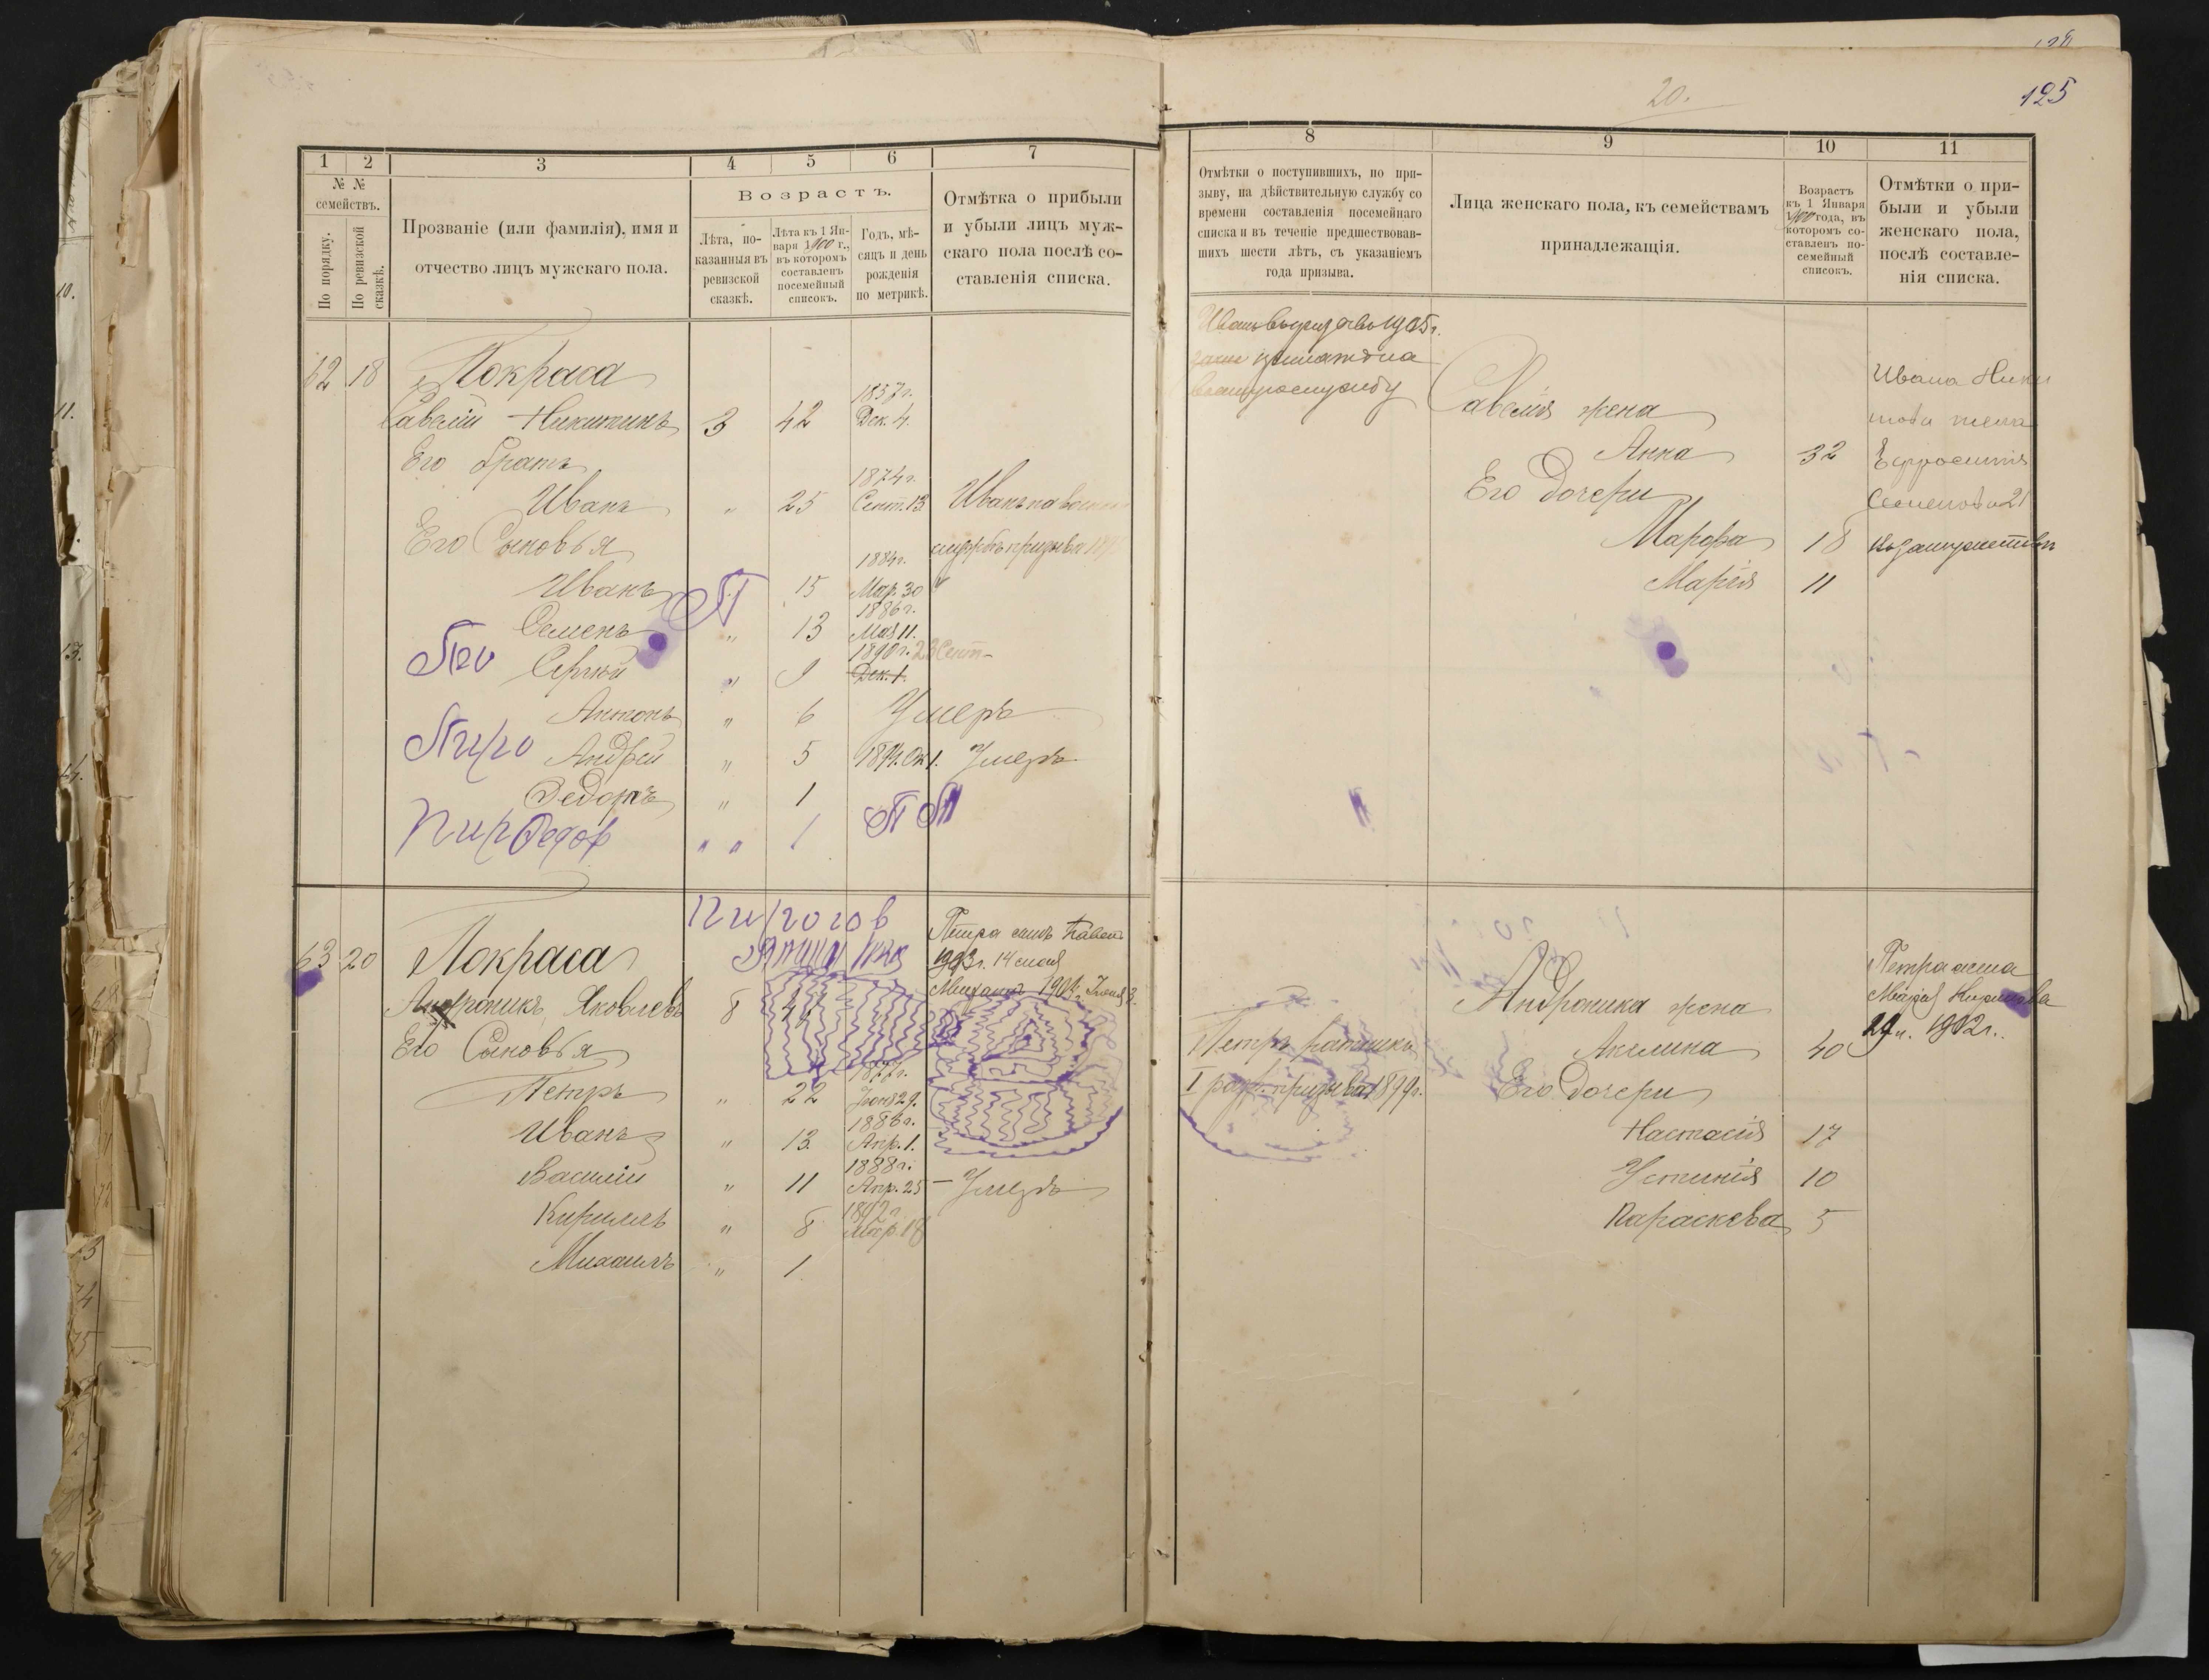 20.
125
1
2
3
4
5
6
7
№ №
семействъ.
По порядку.
По ревизской
сказкѣ.
Прозваніе (или фамилія), имя и
отчество лицъ мужскаго пола.
Возрастъ.
Лѣта, по-
казанныя въ
ревизской
сказкѣ.
Лѣта къ 1 Ян-
варя 1900 г.,
въ которомъ
составленъ
посемейный
списокъ.
Годъ, мѣ-
сяцъ и день
рожденія
по метрикѣ.
Отмѣтка о прибыли
и убыли лицъ муж-
скаго пола послѣ со-
ставленія списка.
62 18 Покраса
Савелій Никитинъ 3 42 1857г. Дек. 4.
Его братъ
Иванъ " 25 1874г. Сент. 13 Иванъ на
службѣ призыва
Его Сыновья
Иванъ 15 1884г. Мар. 30
Семенъ " 13 1886г. Мая 11.
Сергѣй " 9 1890г. 23 Сент. Дек. 1.
Антонъ " 6 Умеръ
Андрей " 5 1894. Ок 1. Умеръ
Федоръ " 1
Пиро
Пир Федор " " 1
П П
Пирогов
63 20 Покраса
Андроникъ Яковлевъ 8
Петра сынъ Павелъ
1903г. 14
Михаилъ
Его Сыновья
Петръ " 22 1877г. Іюня 29.
Иванъ " 13 1886г. Апр. 1.
Василій " 11 1888г. Апр. 25 — Умеръ
Кириллъ " 8 1892г. Мар. 18
Михаилъ " 1
8
9
10
11
Отмѣтки о поступившихъ, по при-
зыву, на дѣйствительную службу со
времени составленія посемейнаго
списка и въ теченіе предшествовав-
шихъ шести лѣтъ, съ указаніемъ
года призыва.
Лица женскаго пола, къ семействамъ
принадлежащія.
Возрастъ
къ 1 Января
1900 года, въ
которомъ со-
ставленъ по-
семейный
списокъ.
Отмѣтки о при-
были и убыли
женскаго пола,
послѣ составле-
нія списка.
Савелія жена
Анна 32
Его дочери
Марфа 18
Марія 11
Ивана Ники
това жена
Ефросинія
Семенова 21
Андроника жена
Акилина 40
Петръ ратникъ
I разр. призыва 1899г.
Его дочери
Настасія 17
Устинія 10
Параскева 5
Петра жена
Марія Кирилова
1902г.